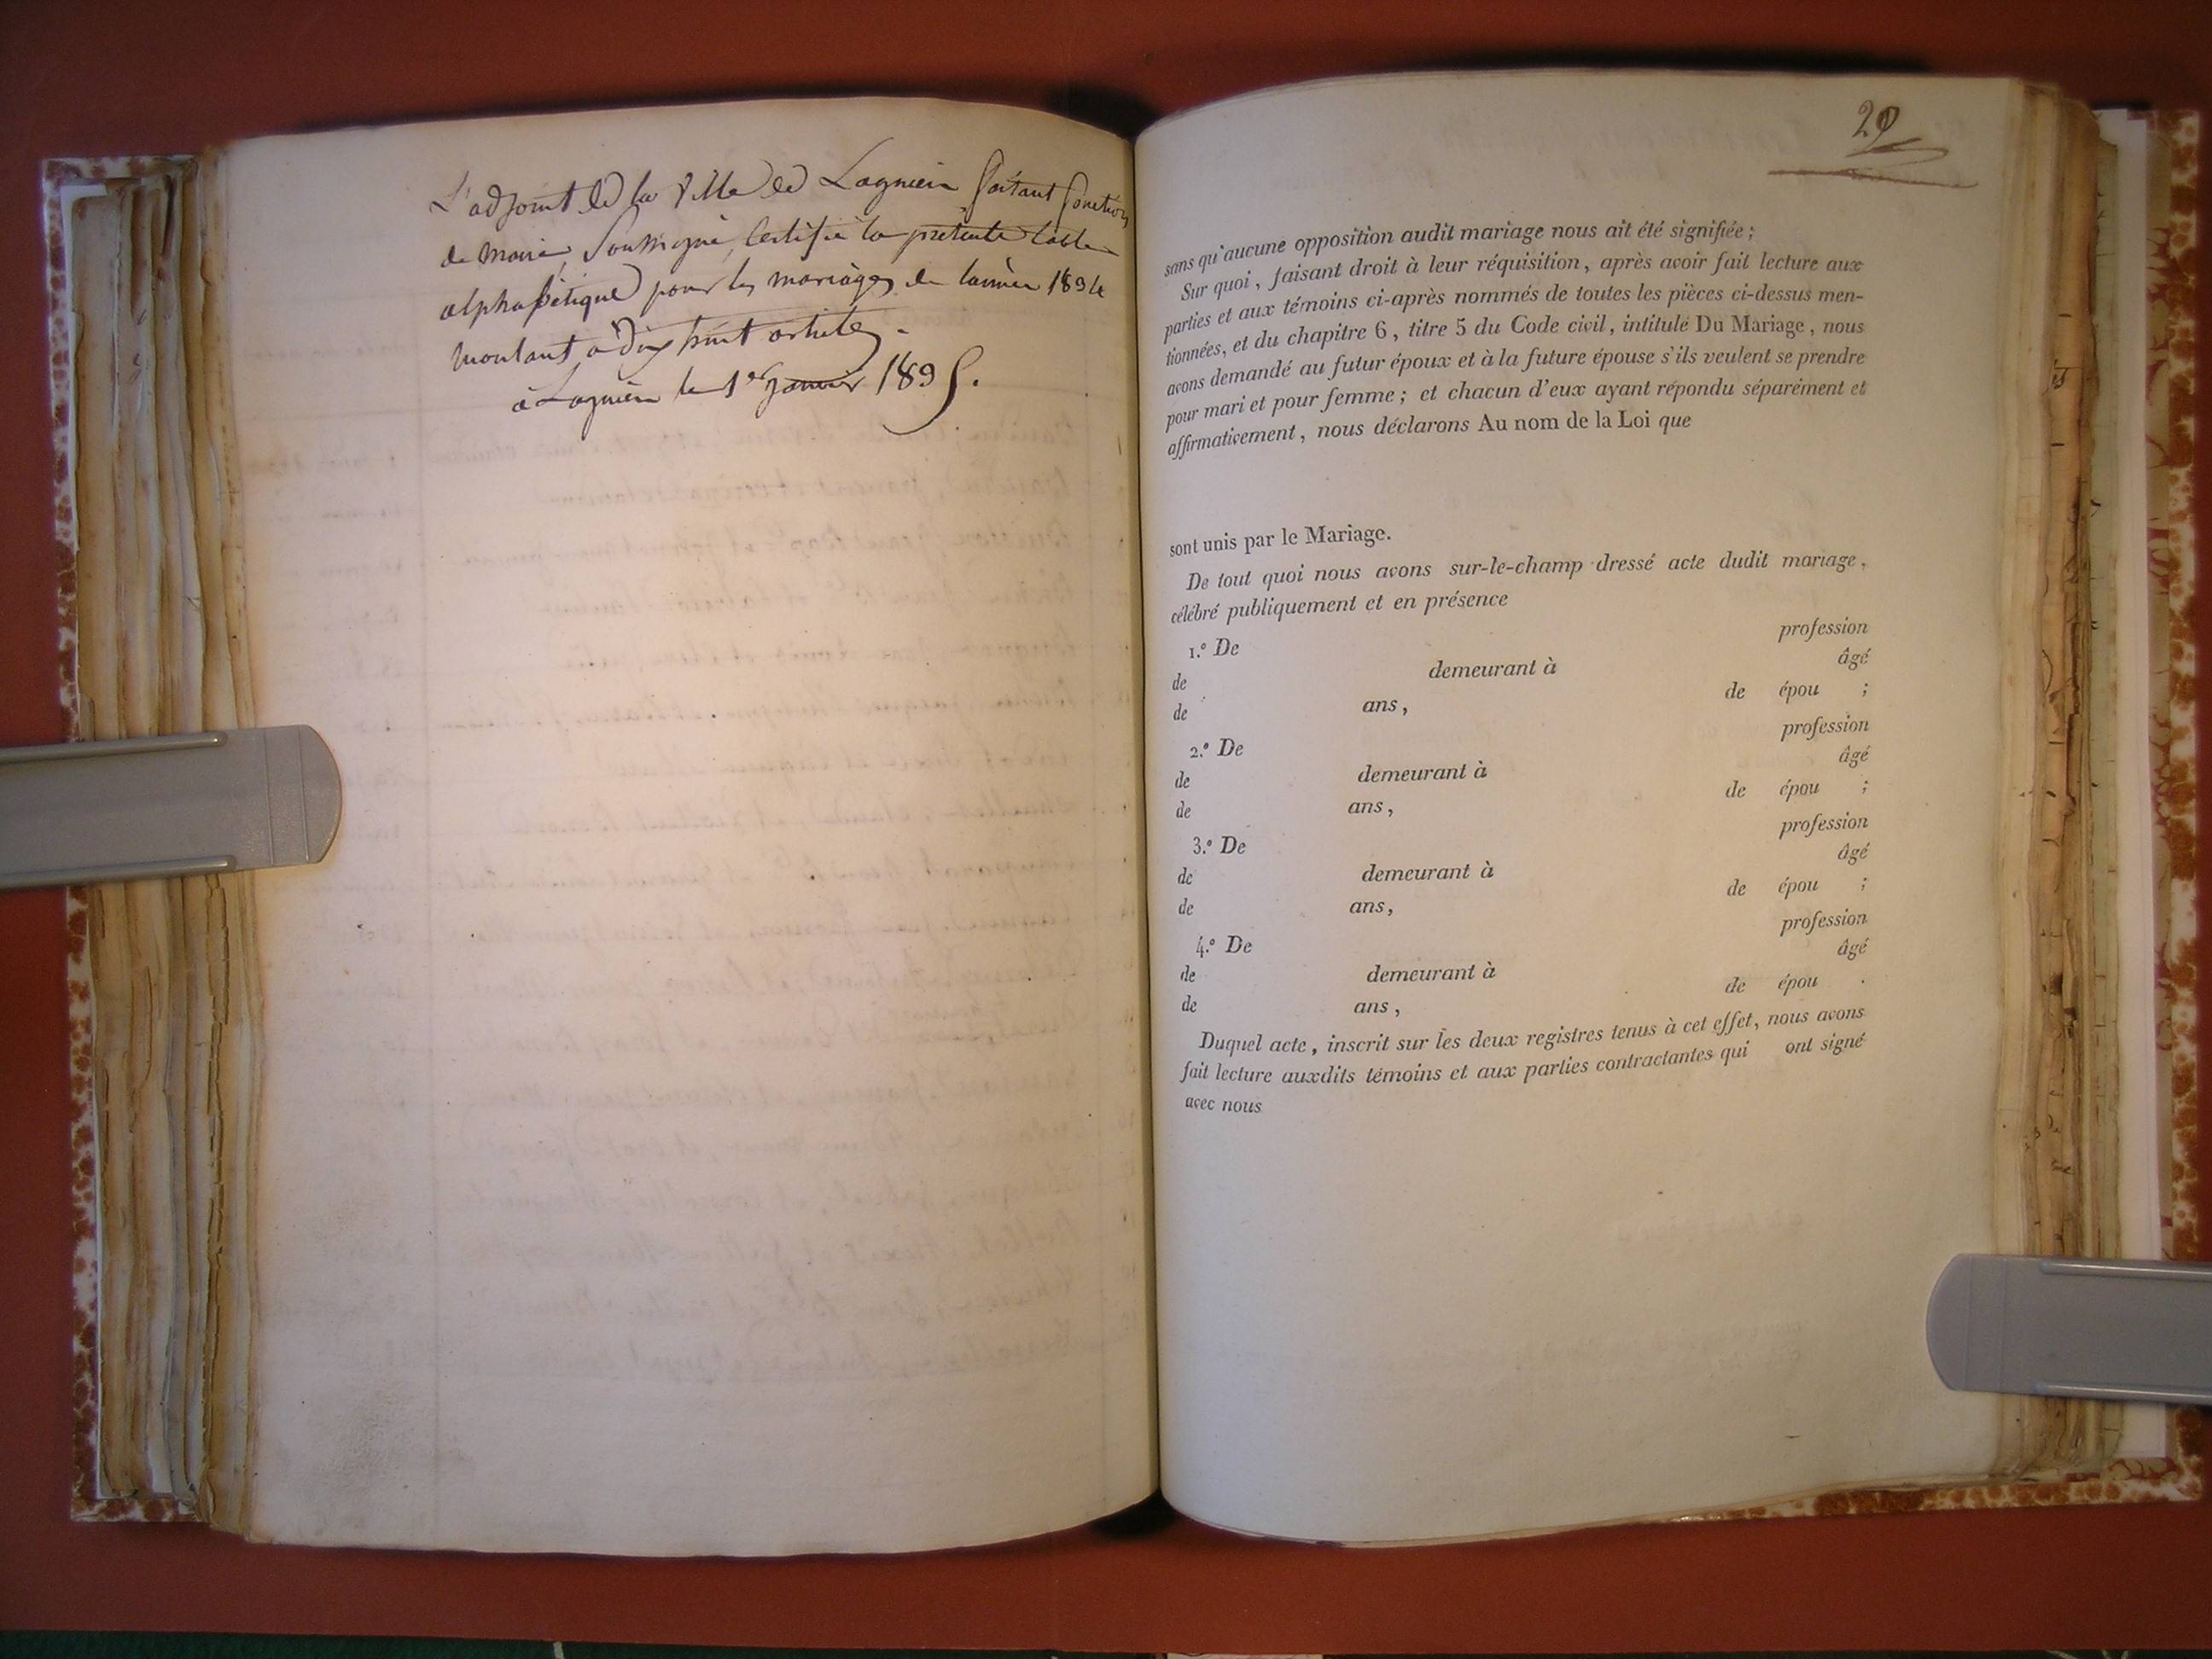 L'adjoint de la Ville de Lagnieu faisant fonction
de maire soussigné, certifie la présente table
alphabétique pour les mariages de l'année 1834
montant à dix huit articles.
à Lagnieu le 1er janvier 1835.
29
sans qu'aucune opposition audit mariage nous ait été signifiée ;
Sur quoi, faisant droit à leur réquisition, après avoir fait lecture aux
parties et aux témoins ci-après nommés de toutes les pièces ci-dessus men-
tionnées, et du chapitre 6, titre 5 du Code civil, intitulé Du Mariage, nous
avons demandé au futur époux et à la future épouse s'ils veulent se prendre
pour mari et pour femme ; et chacun d'eux ayant répondu séparément et
affirmativement, nous déclarons Au nom de la Loi que
sont unis par le Mariage.
De tout quoi nous avons sur-le-champ dressé acte dudit mariage,
célébré publiquement et en présence
1.º De profession
de demeurant à âgé
de ans, de épou ;
2.º De profession
de demeurant à âgé
de ans, de épou ;
3.º De profession
de demeurant à âgé
de ans, de épou ;
4.º De profession
de demeurant à âgé
de ans, de épou .
Duquel acte, inscrit sur les deux registres tenus à cet effet, nous avons
fait lecture auxdits témoins et aux parties contractantes qui ont signé
avec nous